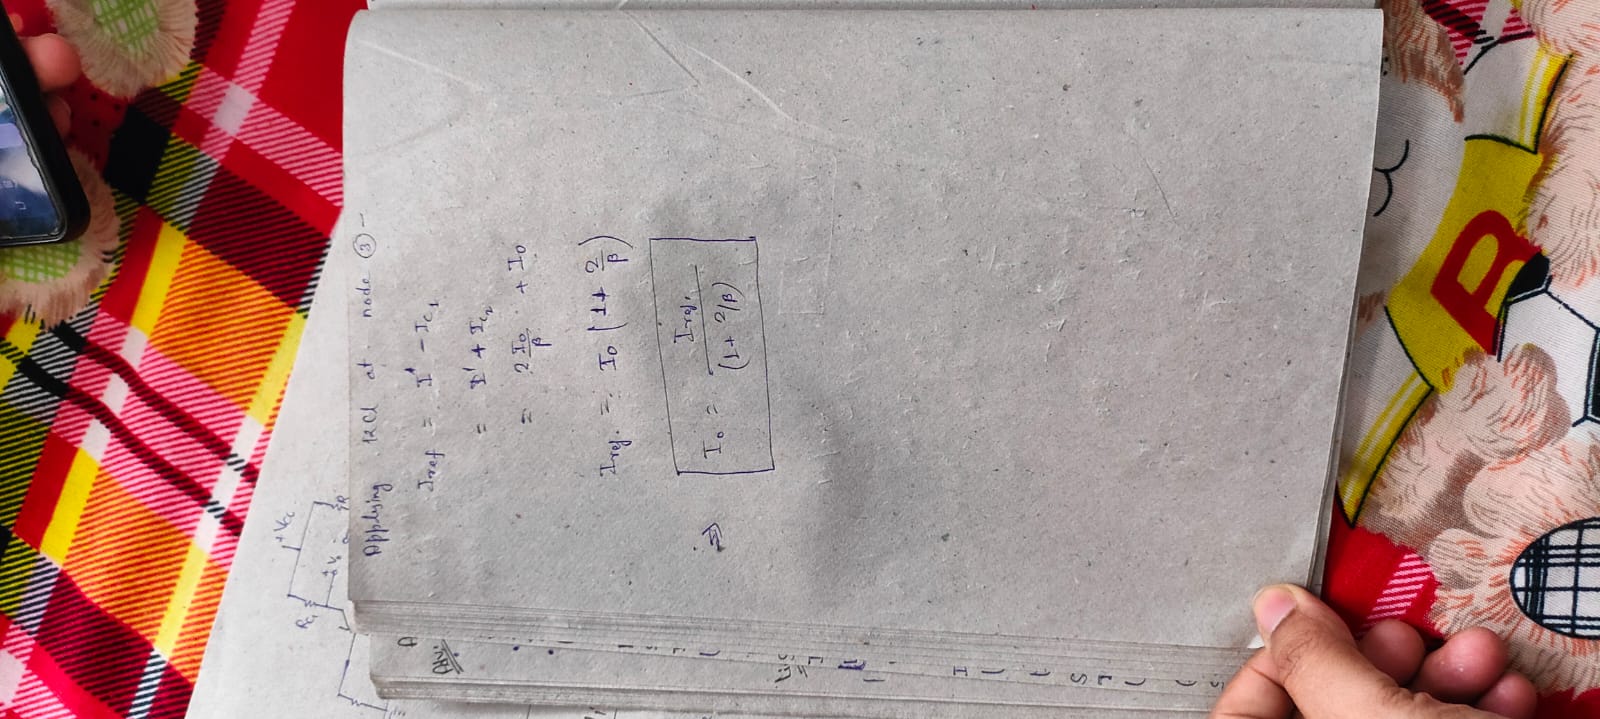 Applying KCl at node ③ -
Iref = I' - Ic₁
= I' + Ic₂
= 2I₀/β + I₀
Iref. = I₀ (1 + 2/β)
⇒ I₀ = Iref. / (1 + 2/β)
+Vcc
Rc₁
V₀
B